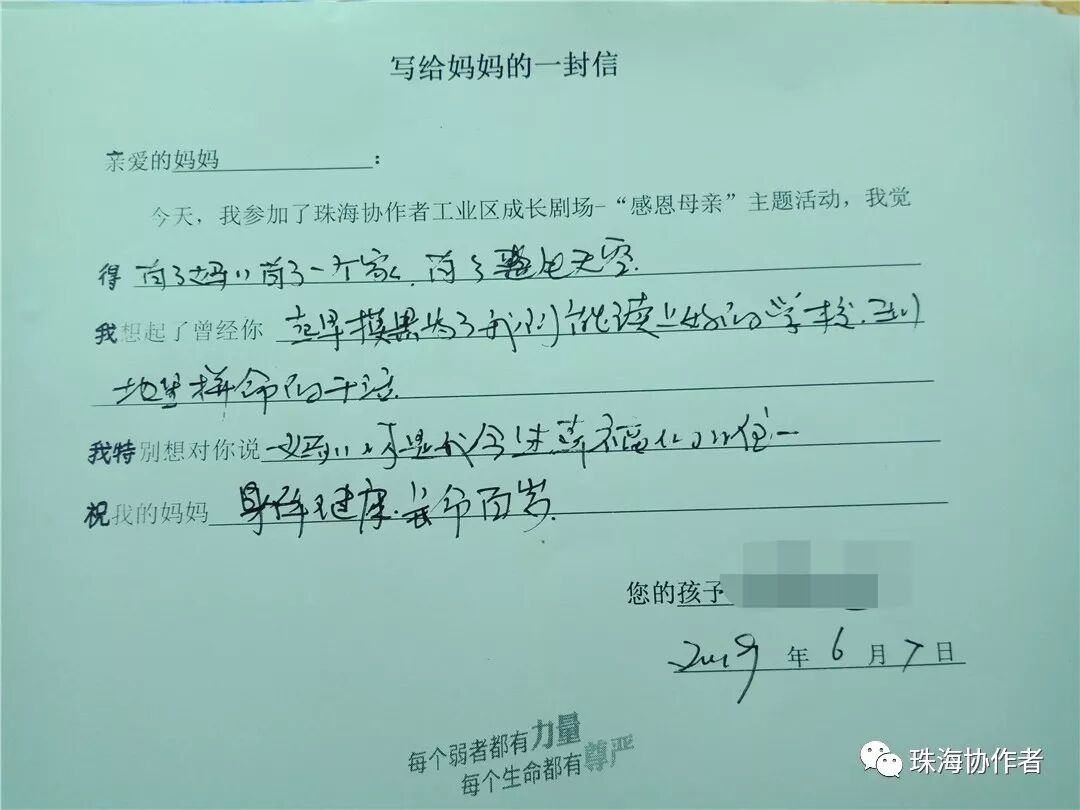 写给妈妈的一封信
亲爱的妈妈：
今天，我参加了珠海协作者工业区成长剧场-“感恩母亲”主题活动，我觉
得 有了妈妈有了一个家，有了天空.
我想起了曾经你 起早摸黑为了我们能读上好的学校.到
地里拼命的干活.
我特别想对你说 妈妈
祝我的妈妈 身体健康.长命百岁.
您的孩子
2019年6月7日
每个弱者都有力量
每个生命都有尊严
珠海协作者